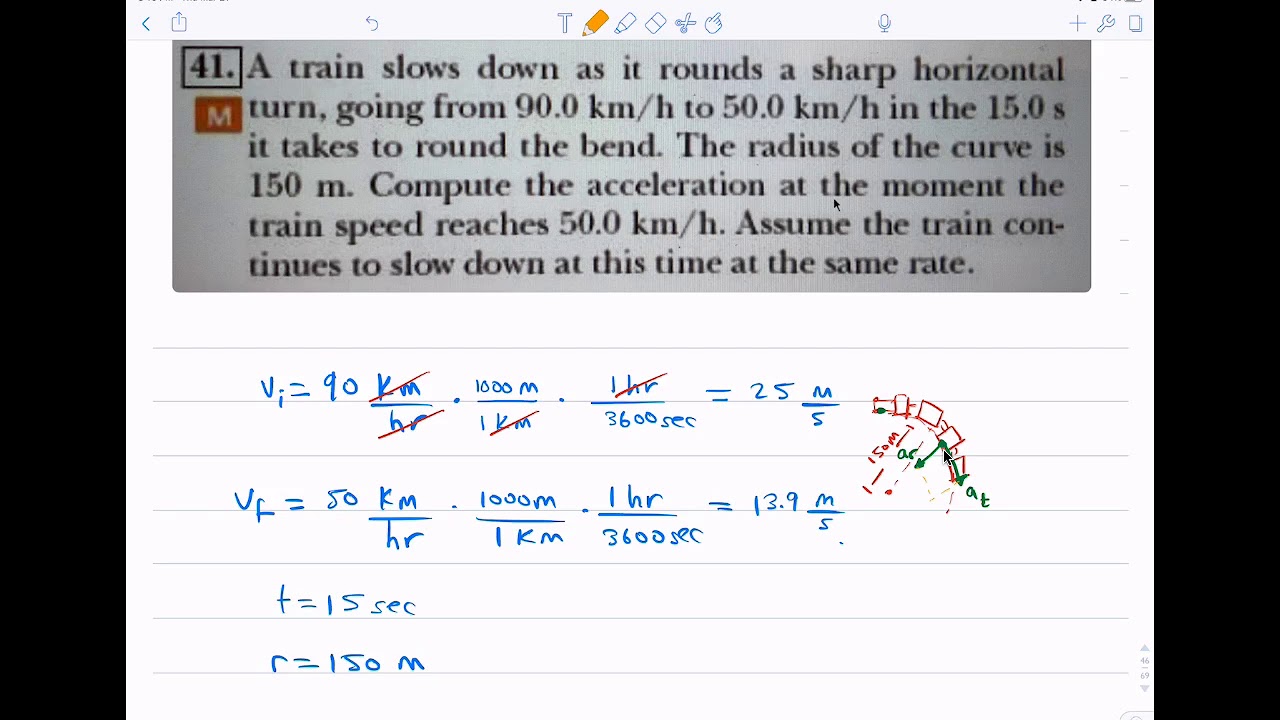 41. A train slows down as it rounds a sharp horizontal
M turn, going from 90.0 km/h to 50.0 km/h in the 15.0 s
it takes to round the bend. The radius of the curve is
150 m. Compute the acceleration at the moment the
train speed reaches 50.0 km/h. Assume the train con-
tinues to slow down at this time at the same rate.
Vi = 90 Km/hr · 1000 m/1 Km · 1 hr/3600 sec = 25 m/s
150m
ar
at
Vf = 50 Km/hr · 1000m/1 Km · 1 hr/3600 sec = 13.9 m/s
t = 15 sec
r = 150 m
46
69